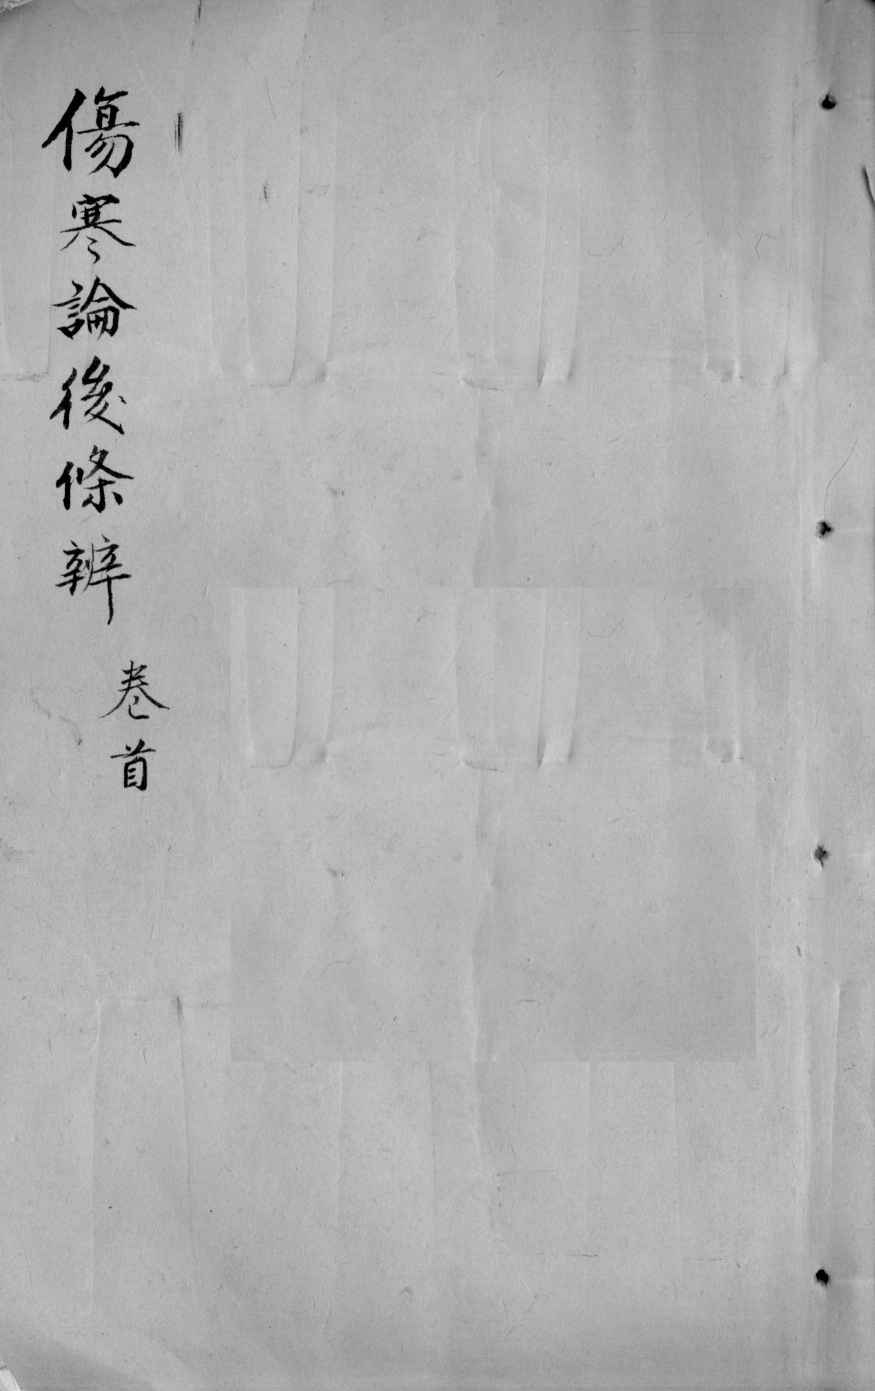 傷寒論後條辨
卷首